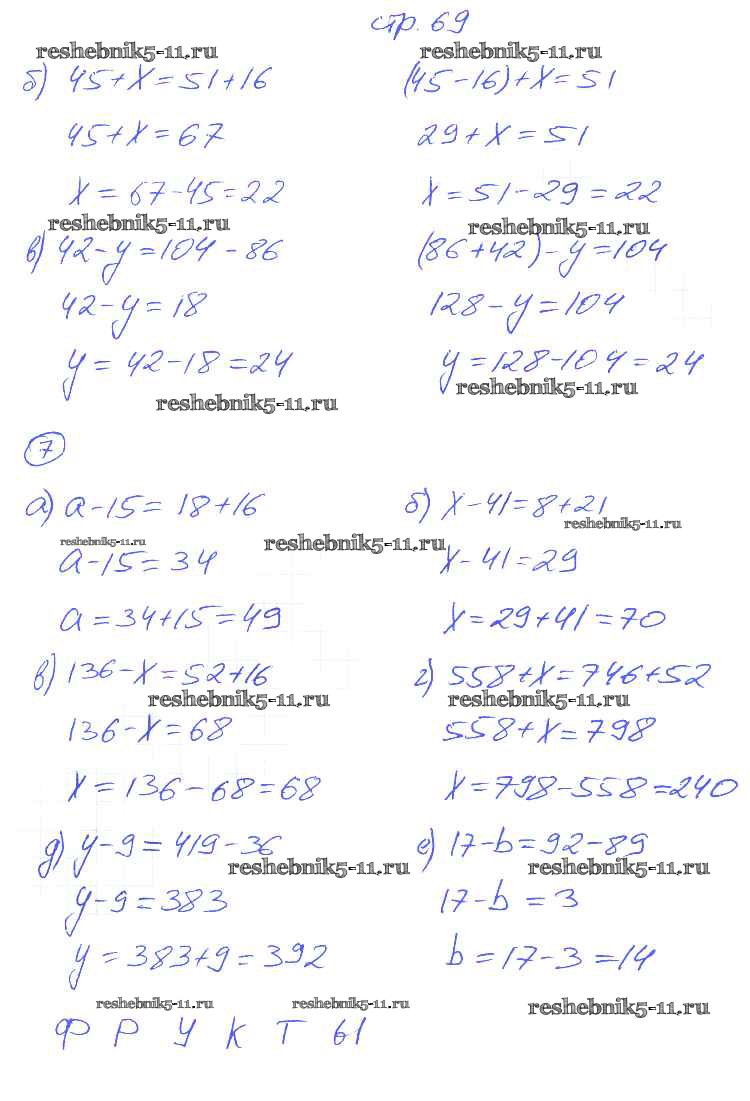 стр. 69
reshebnik5-11.ru reshebnik5-11.ru
б) 45+x=51+16 (45-16)+x=51
45+x=67 29+x=51
x=67-45=22 x=51-29=22
reshebnik5-11.ru reshebnik5-11.ru
в) 42-y=104-86 (86+42)-y=104
42-y=18 128-y=104
y=42-18=24 y=128-104=24
reshebnik5-11.ru reshebnik5-11.ru
7
а) a-15=18+16 б) x-41=8+21
reshebnik5-11.ru reshebnik5-11.ru reshebnik5-11.ru
a-15=34 x-41=29
a=34+15=49 x=29+41=70
в) 136-x=52+16 г) 558+x=746+52
reshebnik5-11.ru reshebnik5-11.ru
136-x=68 558+x=798
x=136-68=68 x=798-558=240
д) y-9=419-36 е) 17-b=92-89
reshebnik5-11.ru reshebnik5-11.ru
y-9=383 17-b=3
y=383+9=392 b=17-3=14
reshebnik5-11.ru reshebnik5-11.ru reshebnik5-11.ru
Ф Р У К Т Ы